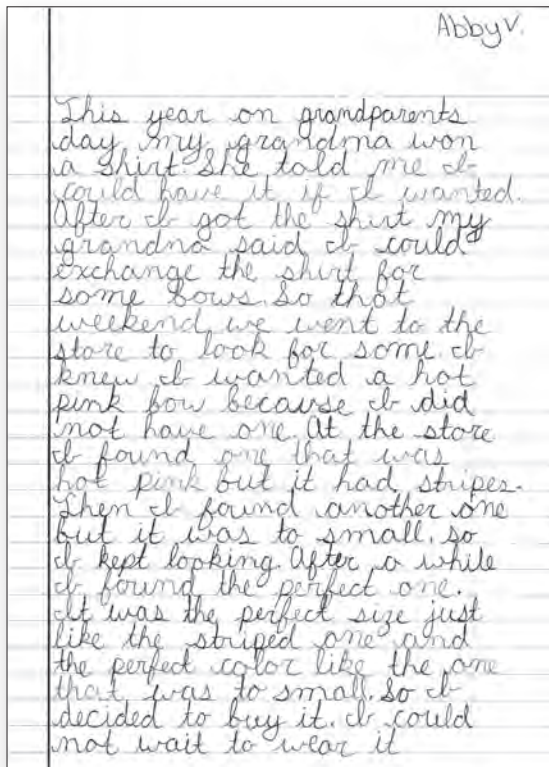 Abby V.
This year on grandparents
day my grandma won
a shirt. She told me I
could have it if I wanted.
After I got the shirt my
grandma said I could
exchange the shirt for
some bows. So that
weekend we went to the
store to look for some. I
knew I wanted a hot
pink bow because I did
not have one. At the store
I found one that was
hot pink but it had stripes.
Then I found another one
but it was to small. so
I kept looking. After a while
I found the perfect one.
It was the perfect size just
like the striped one and
the perfect color like the one
that was to small. So I
decided to buy it. I could
not wait to wear it